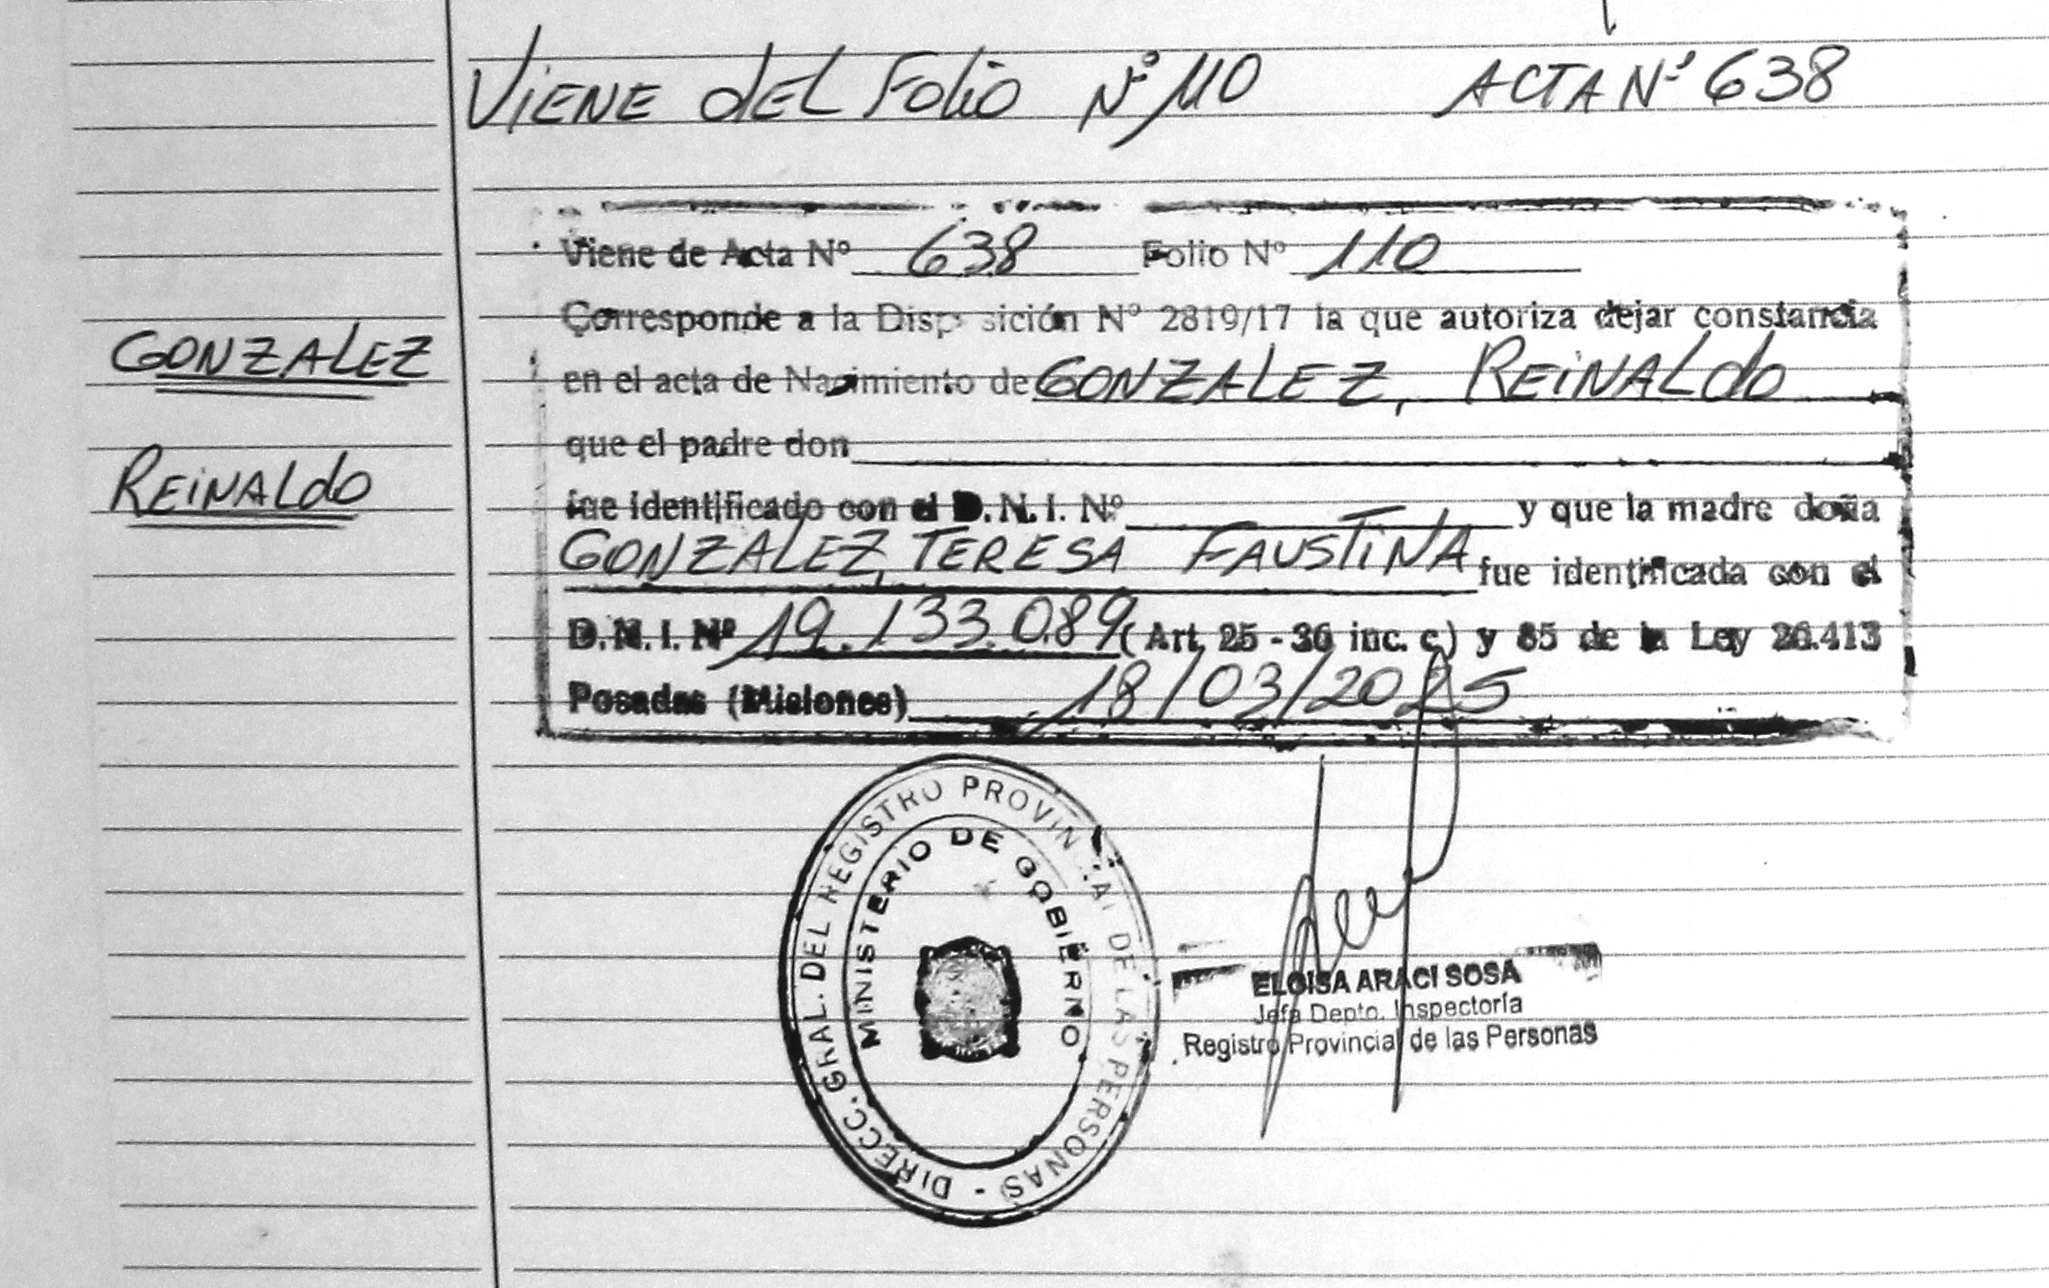 VIENE dEL Folio Nº 110 ACTA Nº 638
Viene de Acta Nº 638 Folio Nº 110
Corresponde a la Disposición Nº 2819/17 la que autoriza dejar constancia
GONZALEZ
en el acta de Nacimiento de GONZALEZ, REINALdo
que el padre don
REINALdo
fue identificado con el D.N.I. Nº y que la madre doña
GONZALEZ, TERESA FAUSTINA fue identificada con el
D.N.I. Nº 19.133.089 (Art. 25 - 36 inc. c) y 85 de la Ley 26.413
Posadas (Misiones) 18/03/2025
DIRECC. GRAL. DEL REGISTRO PROVINCIAL DE LAS PERSONAS -
MINISTERIO DE GOBIERNO
ELOISA ARACI SOSA
Jefa Depto. Inspectoría
Registro Provincial de las Personas